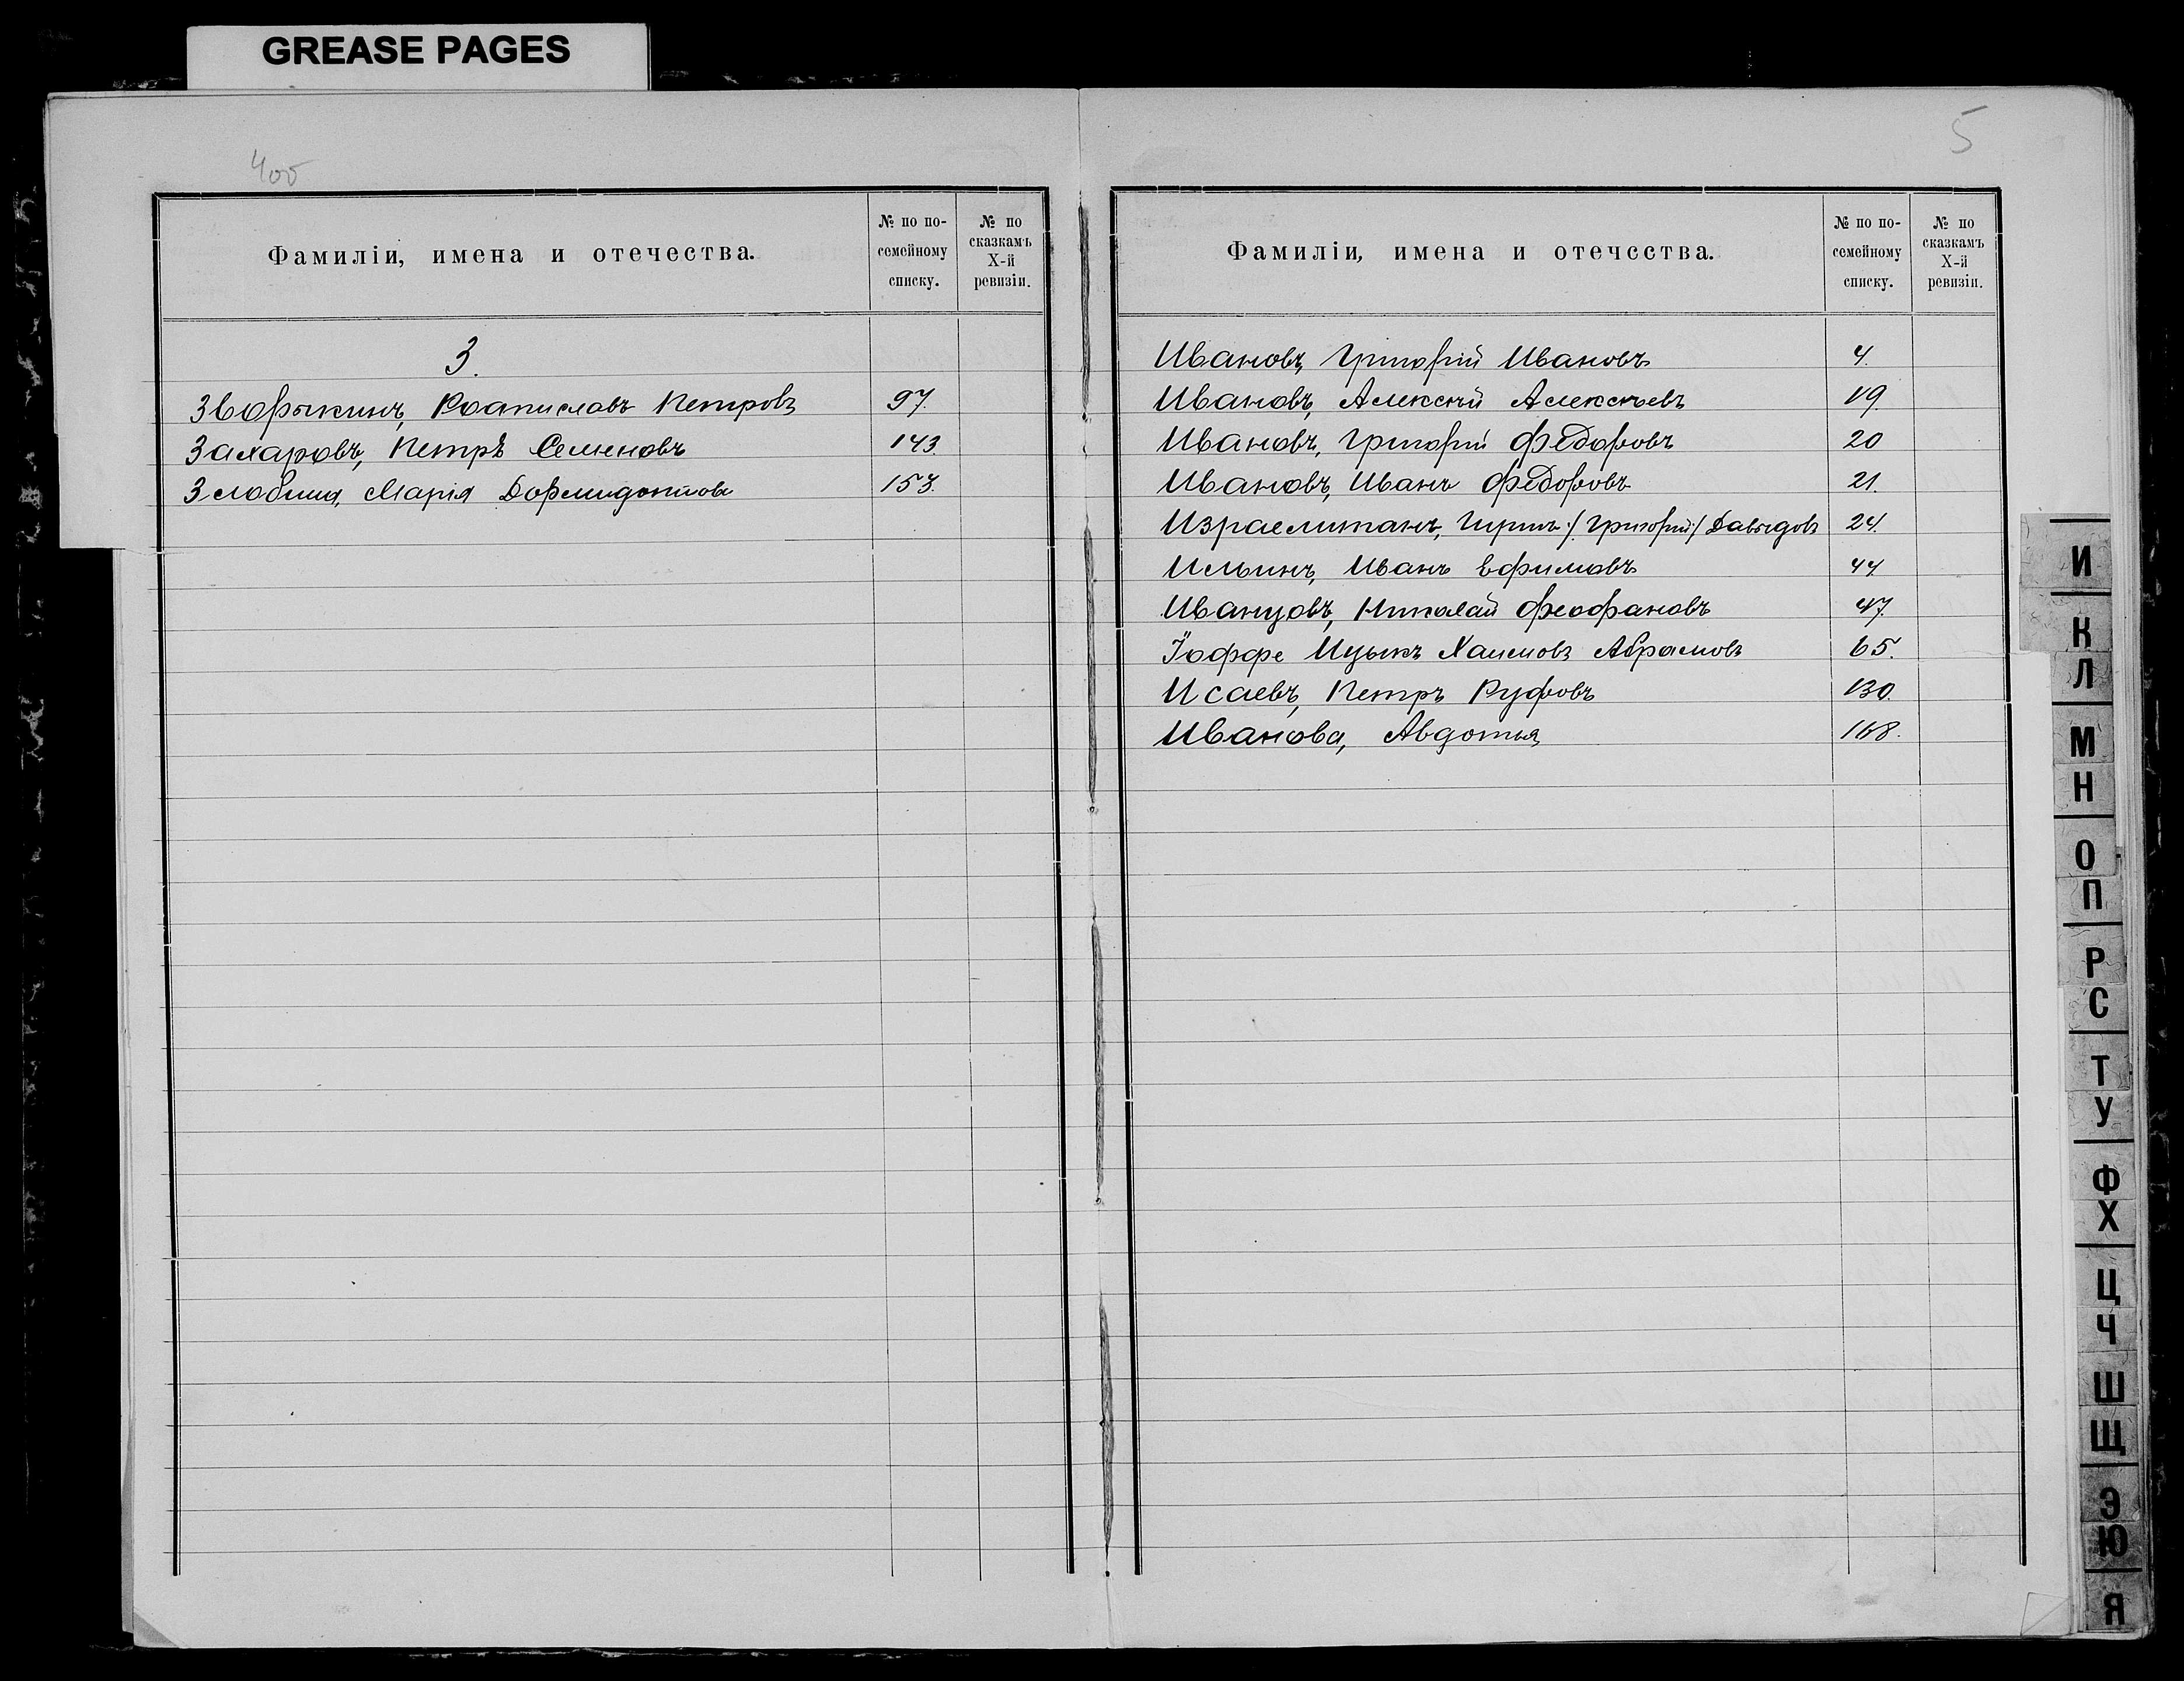 GREASE PAGES
4об
Фамиліи, имена и отечества.
№ по по-
семейному
списку.
№ по
сказкамъ
X-й
ревизіи.
З.
Зворыкинъ, Ростиславъ Петровъ 97.
Захаровъ, Петръ Семеновъ 143.
Злобина, Марія Дормидонтова 157.
5
Фамиліи, имена и отечества.
№ по по-
семейному
списку.
№ по
сказкамъ
X-й
ревизіи.
Ивановъ, Григорій Ивановъ 4.
Ивановъ, Алексѣй Алексѣевъ 19.
Ивановъ, Григорій Федоровъ 20
Ивановъ, Иванъ Федоровъ 21.
Израелитанъ, Гиршъ /:Григорій:/ Давыдовъ 24.
Ильинъ, Иванъ Ефимовъ 44.
Иванцовъ, Николай Феофановъ 47.
Іоффе Ицыкъ Хаимовъ Абрамовъ 65.
Исаевъ, Петръ Руфовъ 130.
Иванова, Авдотья 168.
И
К
Л
М
Н
О
П
Р
С
Т
У
Ф
Х
Ц
Ч
Ш
Щ
Э
Ю
Я